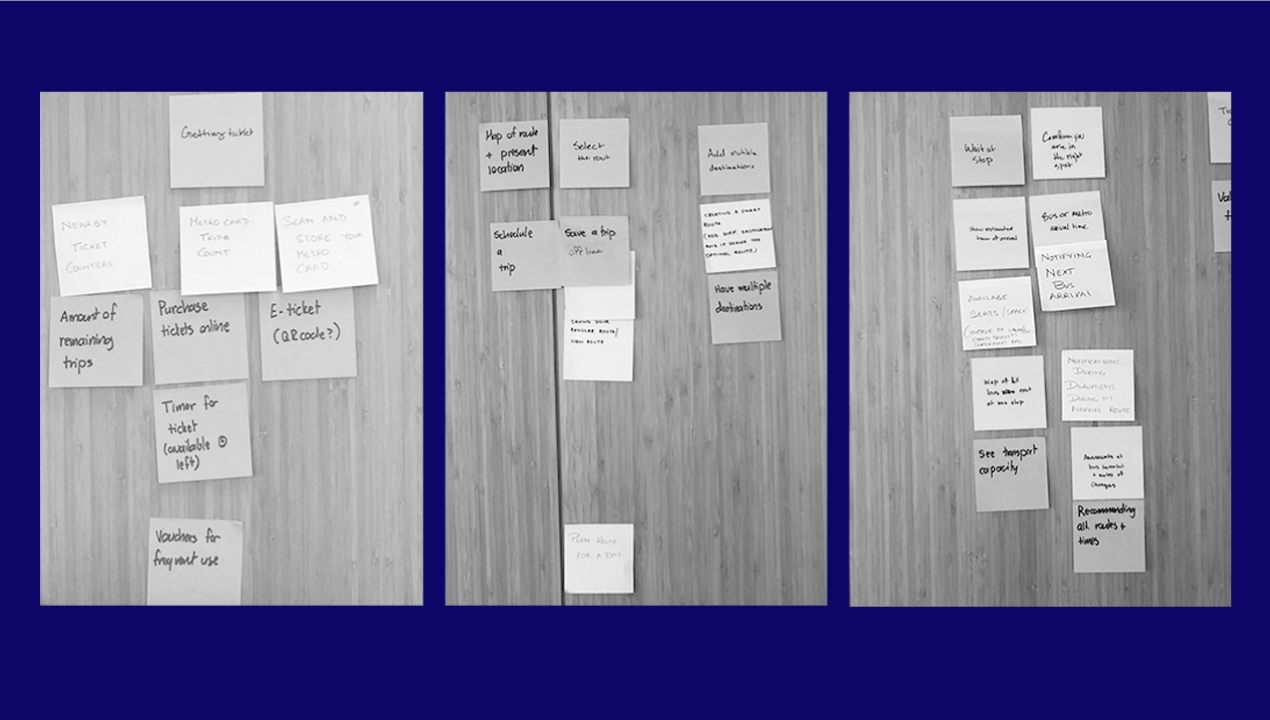 Getting ticket
NEARBY
TICKET
COUNTERS
METRO CARD
TRIPS
COUNT
SCAN AND
STORE YOUR
METRO
CARD
Amount of
remaining
trips
Purchase
tickets online
E-ticket
(QR code?)
Timer for
ticket
(available
left)
Vouchers for
frequent use
Map of route
+ present
location
Select
the rout
Add multible
destinations
Schedule
a
trip
Save a trip
offline
CREATING A SMART
ROUTE
(ADD DIFF. DESTINATIONS
AND IT SHOWS THE
OPTIMAL ROUTE)
Have multiple
destinations
SAVING YOUR
REGULAR ROUTE/
NEW ROUTE
PLAN ROUTE
FOR A DAY
Wait at
stop
Confirm you
are in
the right
spot
Show estimated
hour of arrival
Bus or metro
arrival time
NOTIFYING
NEXT
BUS
ARRIVAL
AVAILABLE
SEATS/SPACE
Map of all
bus rout
at bus stop
NOTIFICATIONS
DURING
DISRUPTIONS
DURING MY
NORMAL ROUTE
See transport
capacity
bus terminal
changes
Recommending
alt. routes +
times